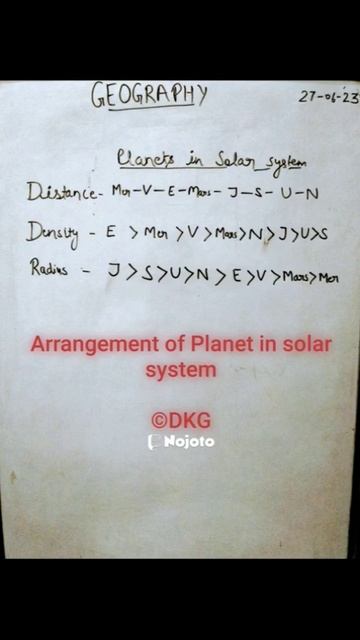 GEOGRAPHY
27-06-'23
Planets in Solar system
Distance- Mer-V-E-Mars-J-S-U-N
Density - E > Mer > V > Mars > N > J > U > S
Radius - J > S > U > N > E > V > Mars > Mer
Arrangement of Planet in solar
system
©DKG
Nojoto